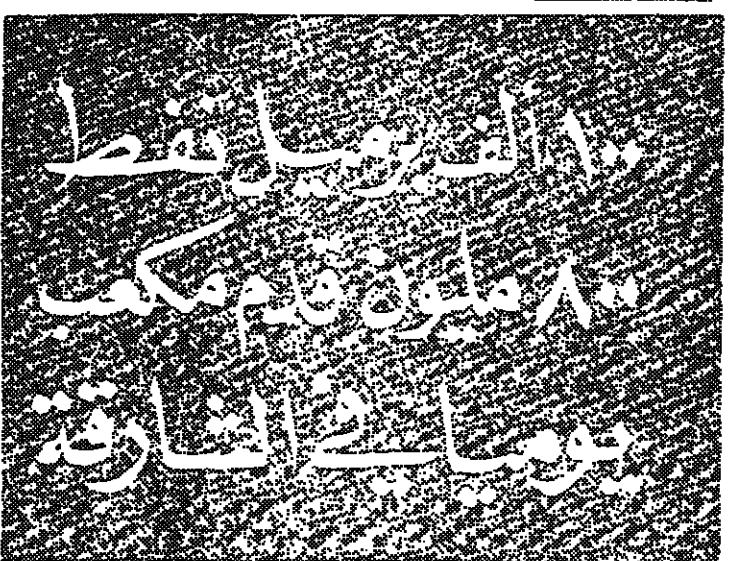 ١٠٠ ألف برميل نفط
٨٠٠ مليون قدم مكعب
يوميا في الشارقة